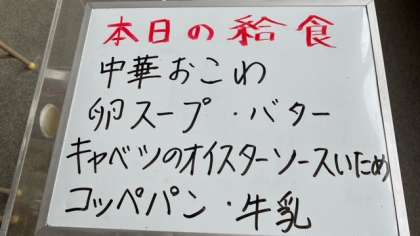 本日の給食
中華おこわ
卵スープ・バター
キャベツのオイスターソースいため
コッペパン・牛乳